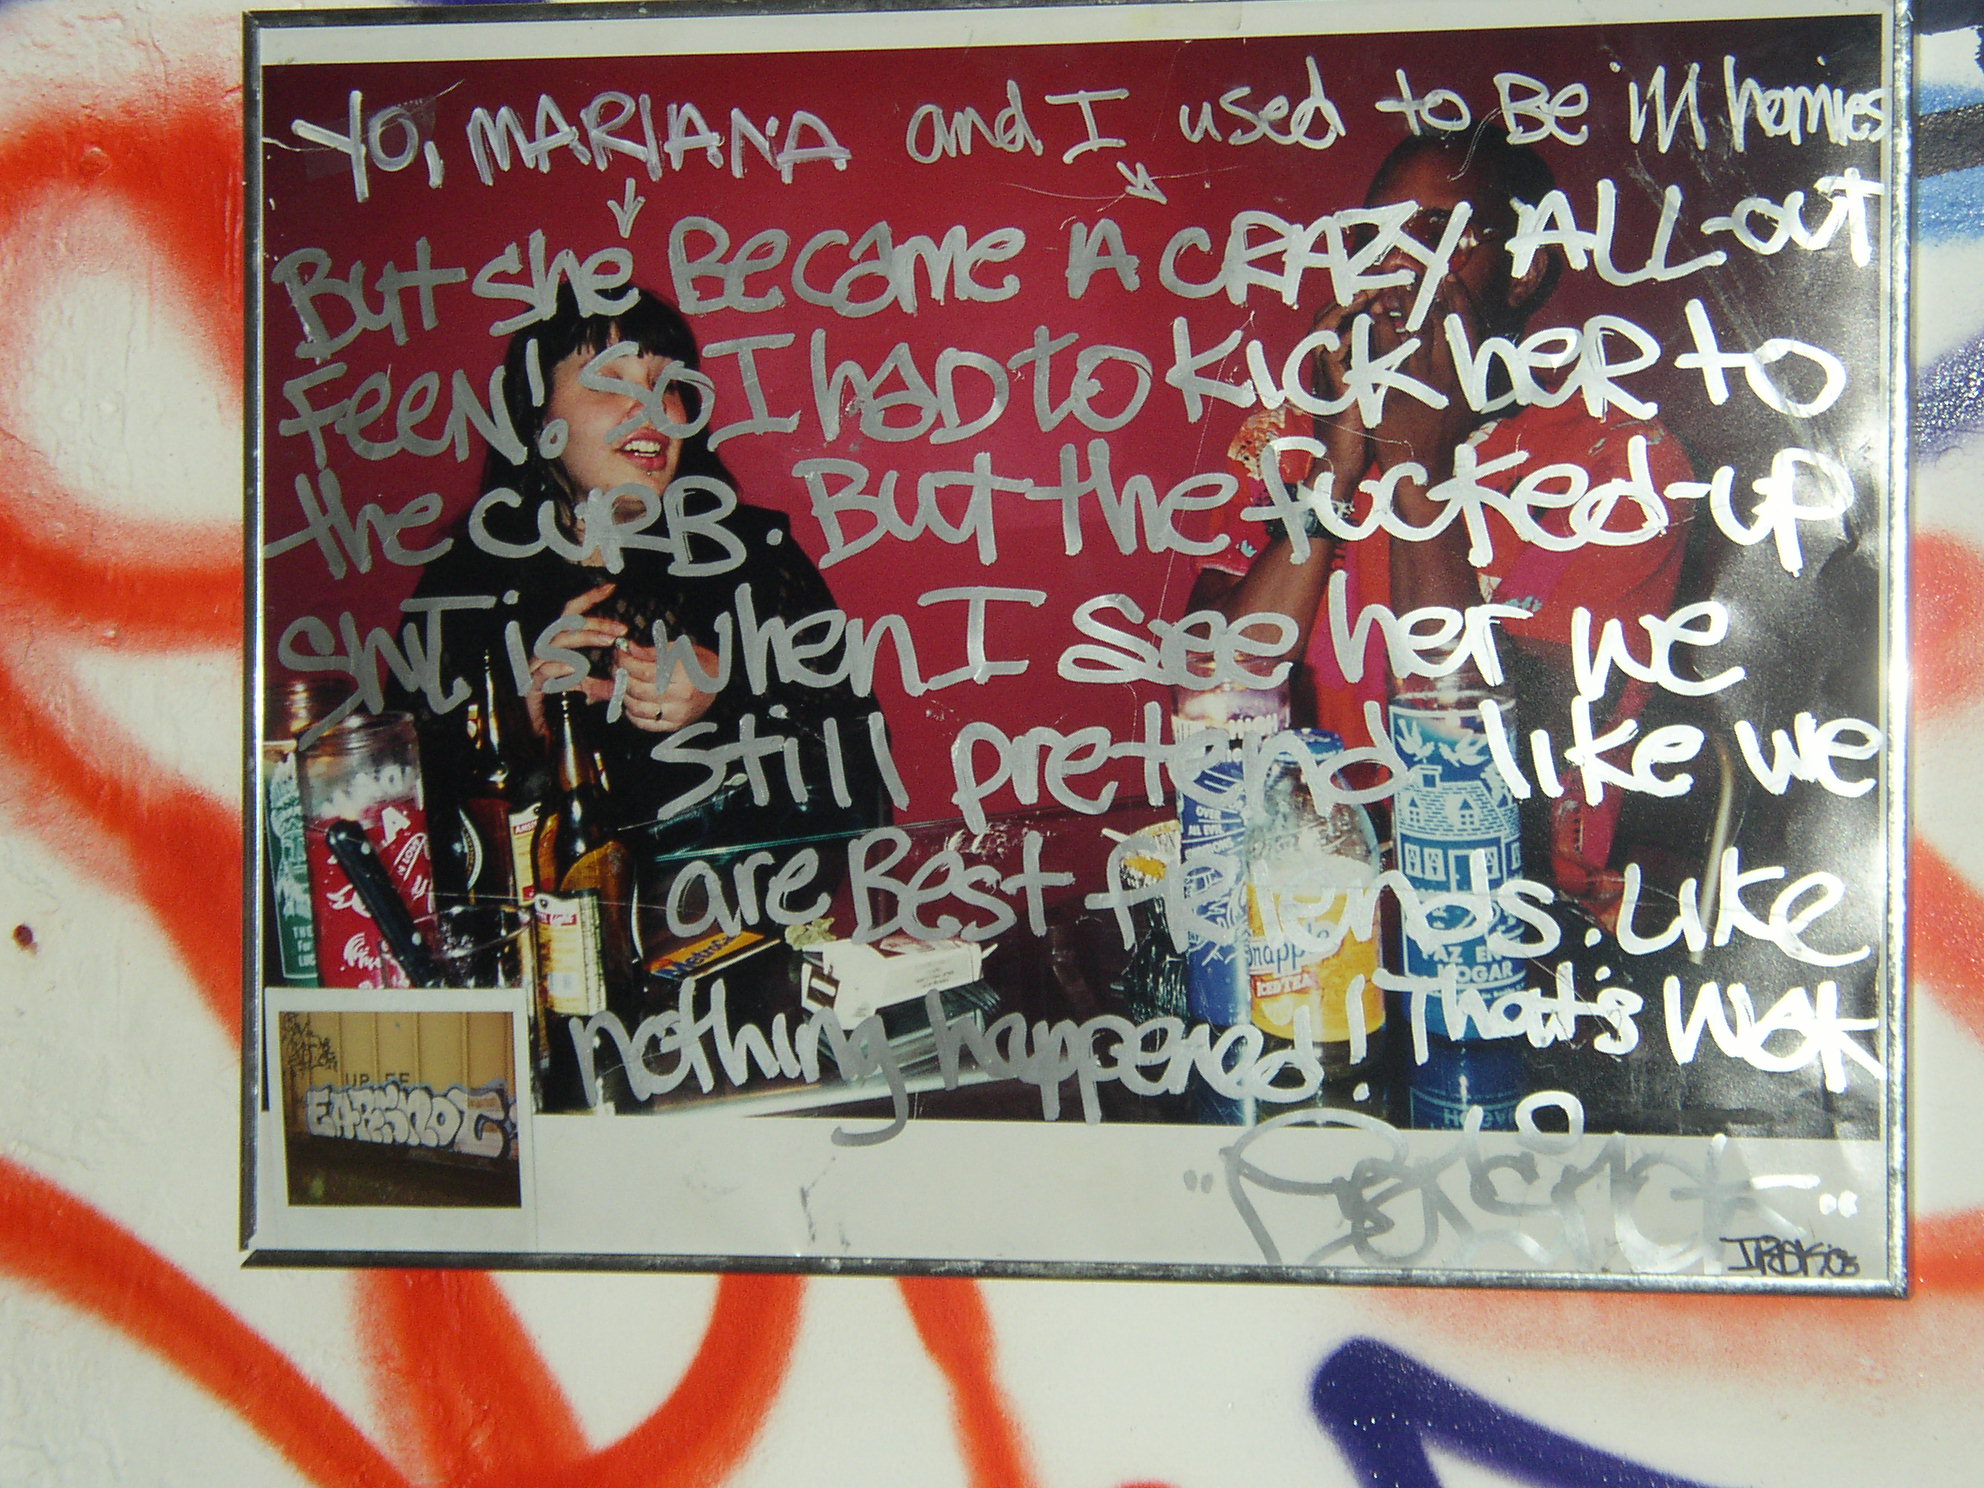 Yo, MARIANA and I used to Be ill homies
But she Became A CRAZY ALL-out
FeeN! So I had to Kick heR to
the CURB. But the fucked-up
Shit is, when I see her we
still pretend like we
are Best friends. Like
nothing happened! That's wak
IRAK '03
EARSNOT
OVER
ALL EVIL
Snapple
ICED TEA
PAZ EN
HOGAR
Metro